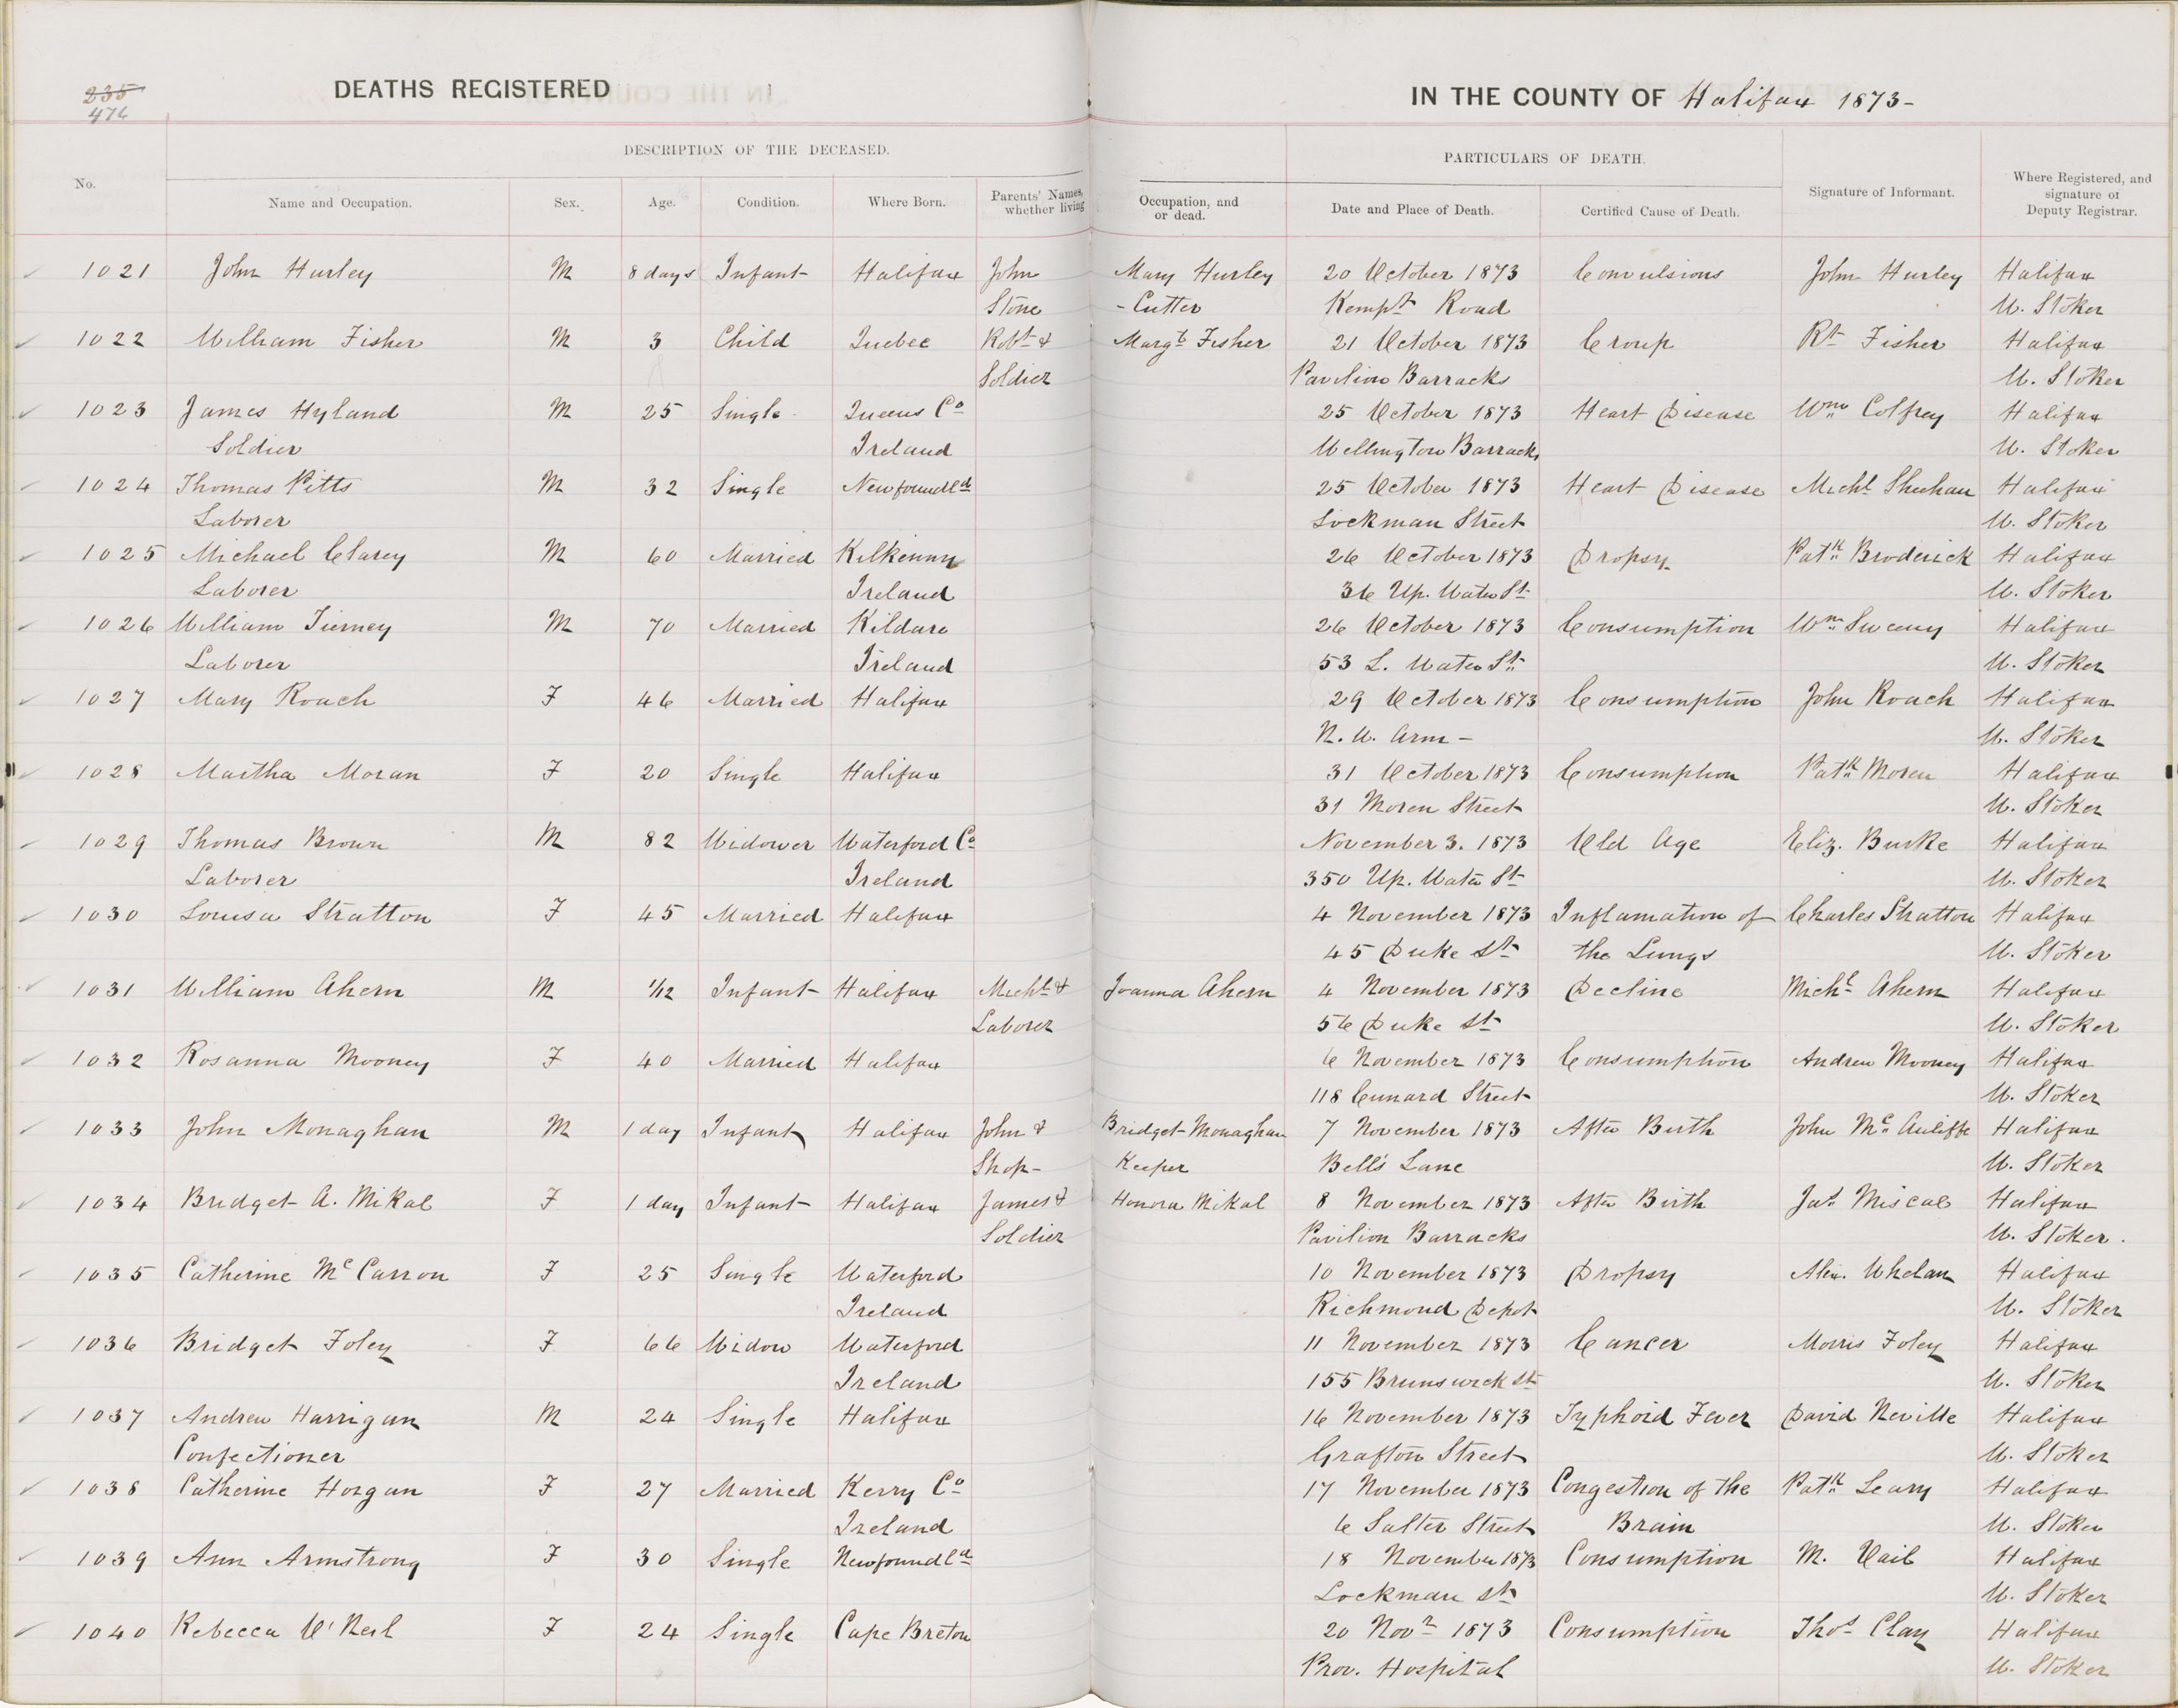 235
476
DEATHS REGISTERED
IN THE COUNTY OF Halifax 1873-
DESCRIPTION OF THE DECEASED.
PARTICULARS OF DEATH.
No.
Name and Occupation.
Sex.
Age.
Condition.
Where Born.
Parents' Names, whether living
Occupation, and or dead.
Date and Place of Death.
Certified Cause of Death.
Signature of Informant.
Where Registered, and signature of Deputy Registrar.
1021 John Hurley M 8 days Infant Halifax John Mary Hurley 20 October 1873 Convulsions John Hurley Halifax
Stone - Cutter Kempt Road W. Stoker
1022 William Fisher M 3 Child Quebec Robt & Margt Fisher 21 October 1873 Croup Rt Fisher Halifax
Soldier Pavilion Barracks W. Stoker
1023 James Hyland M 25 Single Queens Co 25 October 1873 Heart Disease Wm Colfrey Halifax
Soldier Ireland Wellington Barracks W. Stoker
1024 Thomas Pitts M 32 Single Newfoundld 25 October 1873 Heart Disease Michl Sheehan Halifax
Laborer Lockman Street W. Stoker
1025 Michael Clarey M 60 Married Kilkenny 26 October 1873 Dropsy Patk Broderick Halifax
Laborer Ireland 36 Up. Water St W. Stoker
1026 William Tierney M 70 Married Kildare 26 October 1873 Consumption Wm Sweeny Halifax
Laborer Ireland 53 L. Water St W. Stoker
1027 Mary Roach F 46 Married Halifax 29 October 1873 Consumption John Roach Halifax
N. W. Arm - W. Stoker
1028 Martha Moran F 20 Single Halifax 31 October 1873 Consumption Patk Moren Halifax
31 Moren Street W. Stoker
1029 Thomas Brown M 82 Widower Waterford Co November 3. 1873 Old Age Eliz. Burke Halifax
Laborer Ireland 350 Up. Water St W. Stoker
1030 Louisa Stratton F 45 Married Halifax 4 November 1873 Inflamation of Charles Stratton Halifax
45 Duke St the Lungs W. Stoker
1031 William Ahern M 1/12 Infant Halifax Michl & Joanna Ahern 4 November 1873 Decline Michl Ahern Halifax
Laborer 56 Duke St W. Stoker
1032 Rosanna Mooney F 40 Married Halifax 6 November 1873 Consumption Andrew Mooney Halifax
118 Cunard Street W. Stoker
1033 John Monaghan M 1 day Infant Halifax John & Bridget Monaghan 7 November 1873 After Birth John Mc Auliffe Halifax
Shop- Keeper Bell's Lane W. Stoker
1034 Bridget A. Mikal F 1 day Infant Halifax James & Honora Mikal 8 November 1873 After Birth Jas Miscal Halifax
Soldier Pavilion Barracks W. Stoker.
1035 Catherine McCarron F 25 Single Waterford 10 November 1873 Dropsy Alex. Whelan Halifax
Ireland Richmond Depot W. Stoker
1036 Bridget Foley F 66 Widow Waterford 11 November 1873 Cancer Morris Foley Halifax
Ireland 155 Brunswick St W. Stoker
1037 Andrew Harrigan M 24 Single Halifax 16 November 1873 Typhoid Fever David Neville Halifax
Confectioner Grafton Street W. Stoker
1038 Catherine Horgan F 27 Married Kerry Co 17 November 1873 Congestion of the Patk Leary Halifax
Ireland 6 Salter Street Brain W. Stoker
1039 Ann Armstrong F 30 Single Newfoundld 18 November 1873 Consumption M. Vail Halifax
Lockman St W. Stoker
1040 Rebecca O'Neil F 24 Single Cape Breton 20 Novr 1873 Consumption Thos Clay Halifax
Prov. Hospital W. Stoker